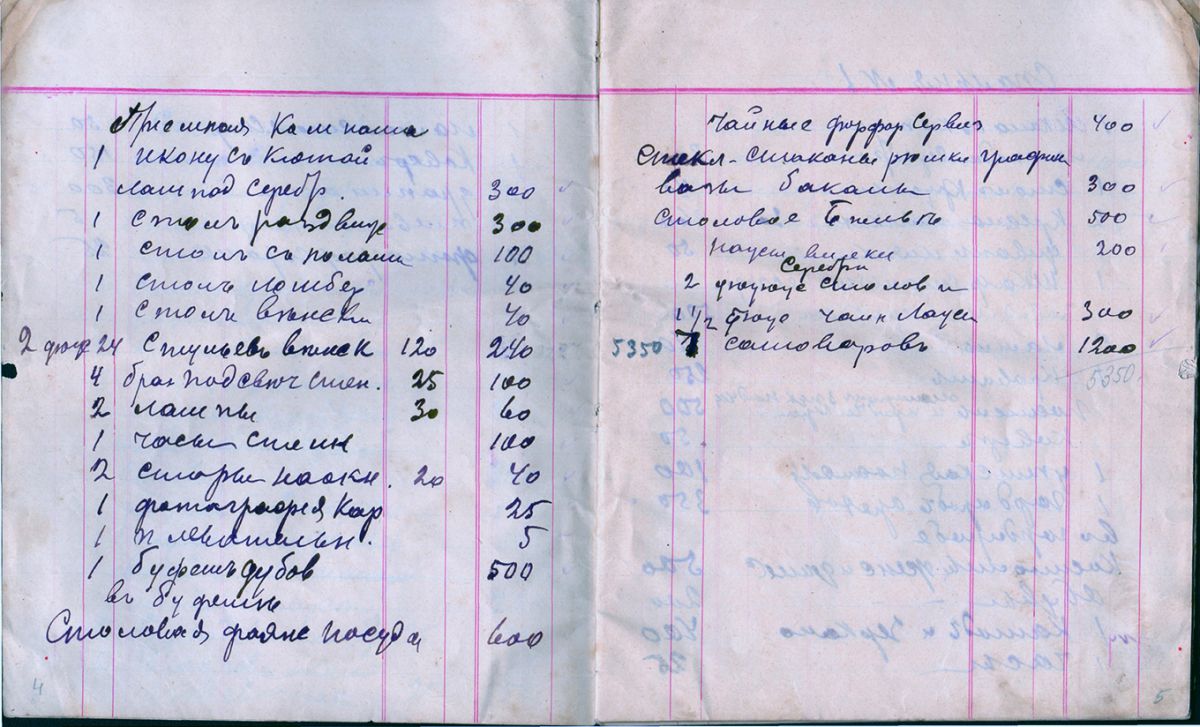 Приемная Комната
1 икону съ Кютой
лампад серебр. 300
1 столъ раздвиж 300
1 столъ съ полами 100
1 столъ ломбер 40
1 столъ вѣнски 40
2 дюж 24 Стульевъ вѣнск 120 240
4 браз подсвѣч стен. 25 100
2 лампы 30 60
1 часы стенн 100
2 сторы на окн. 20 40
1 фотография Кар 25
1 плевательн. 5
1 буфетъ дубов 500
въ буфетѣ
Столовая фаянс посуда 600
4
чайные фарфор сервиз 400
стекл. стаканы рюмки графин
вазы бакалы 300
столовое бѣлье 500
вилки 200
серебр
2 дюж столов и
1 1/2 дюж чайн 300
5350 7 самоваровъ 1200
5350
5